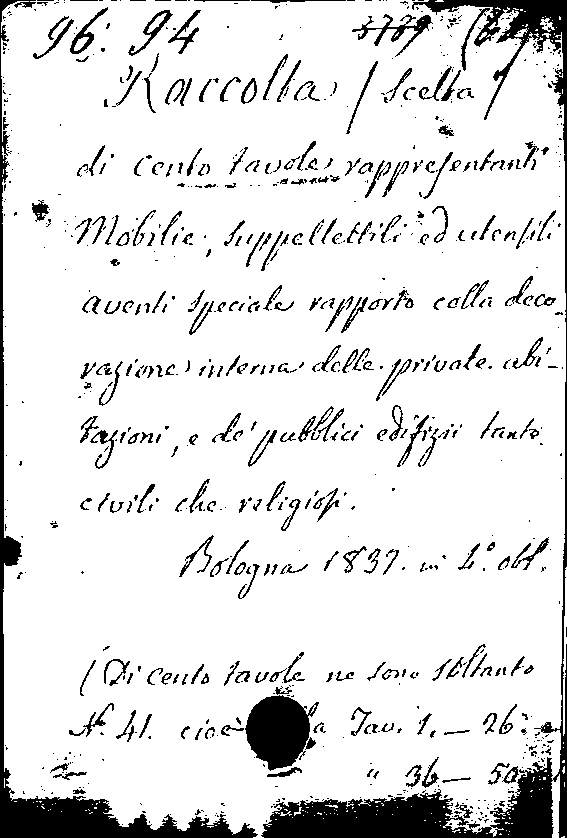 96. 94 3789
Raccolta (Scelta)
di cento tavole rappresentanti
Mobilie, suppellettili ed utensili
aventi speciale rapporto colla deco-
razione interna delle private abi-
tazioni, e de' pubblici edifizii tanto
civili che religiosi.
Bologna 1837. in 4.º obl.
(Di cento tavole ne sono soltanto
Nº 41. cioè la Tav. 1. — 26.
" 36 — 50